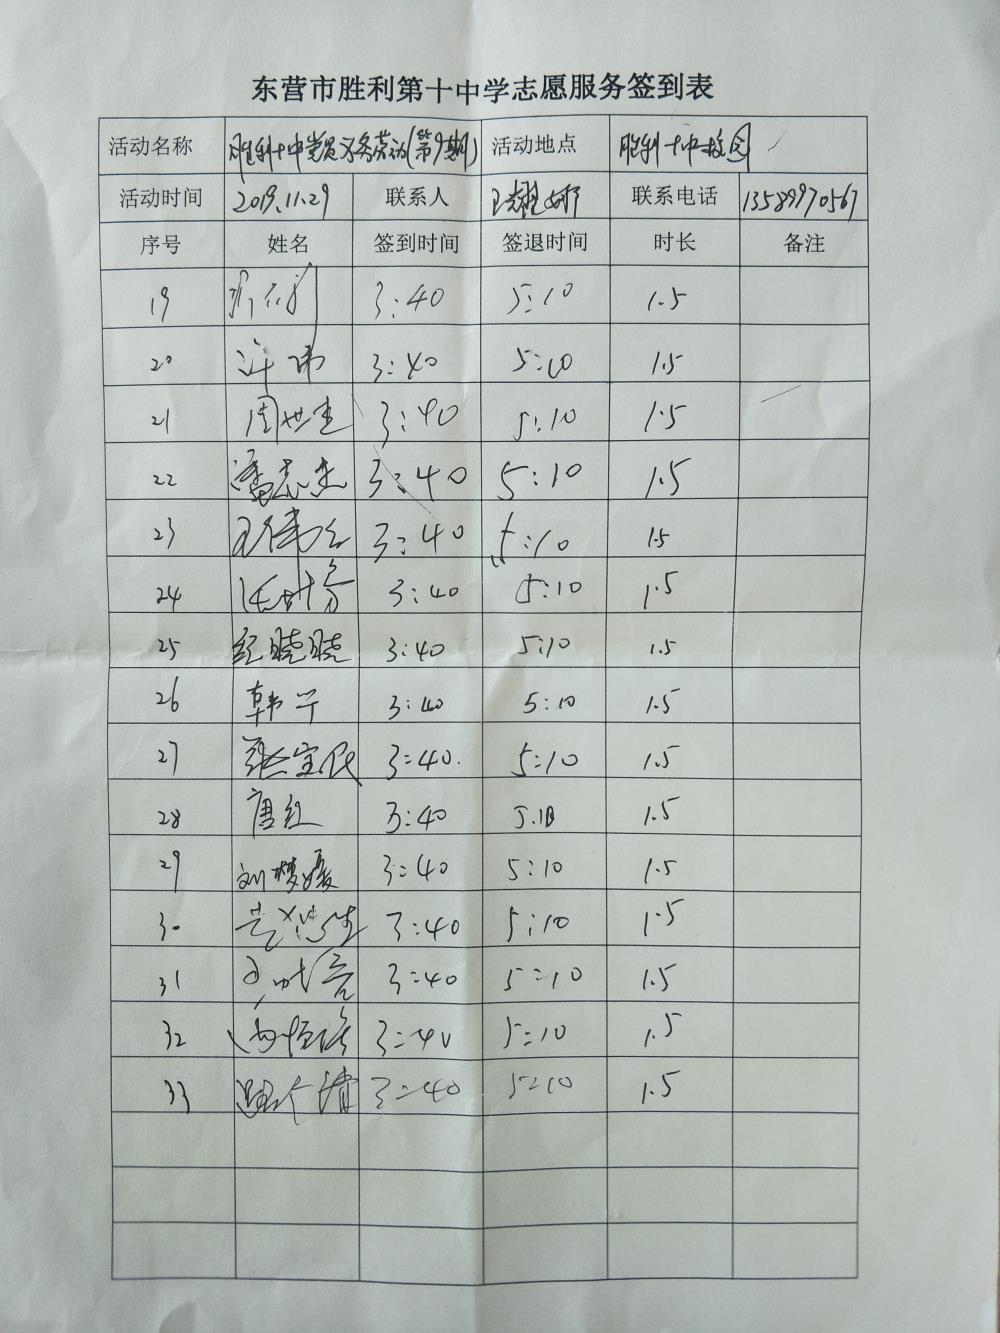 东营市胜利第十中学志愿服务签到表
活动名称 胜利十中党员义务劳动(第9期) 活动地点 胜利十中校园
活动时间 2019.11.29 联系人 王耀娜 联系电话 13589970567
序号 姓名 签到时间 签退时间 时长 备注
19 3:40 5:10 1.5
20 许伟 3:40 5:10 1.5
21 周世圭 3:40 5:10 1.5
22 潘志杰 3:40 5:10 1.5
23 3:40 5:10 1.5
24 3:40 5:10 1.5
25 纪晓晓 3:40 5:10 1.5
26 韩 3:40 5:10 1.5
27 张宝民 3:40. 5:10 1.5
28 唐红 3:40 5:10 1.5
29 刘梦媛 3:40 5:10 1.5
30 3:40 5:10 1.5
31 3:40 5:10 1.5
32 3:40 5:10 1.5
33 3:40 5:10 1.5